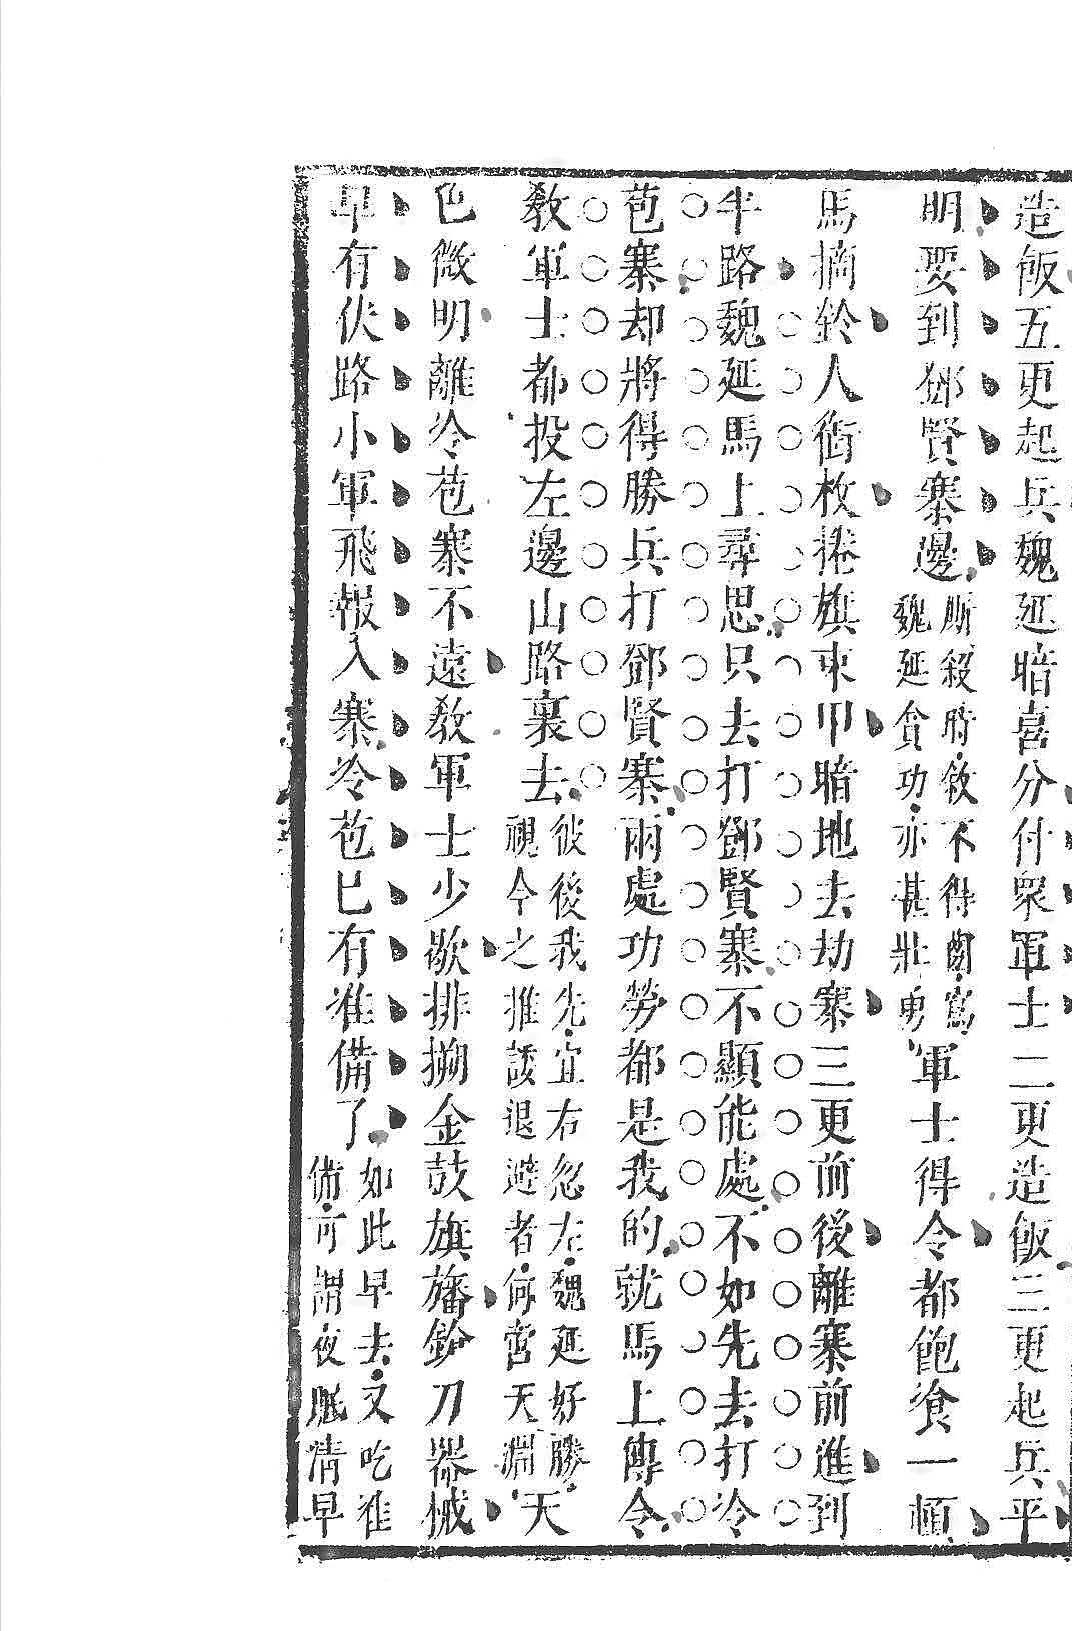 造飯五更起兵魏延暗喜分付衆軍士二更造飯三更起兵平
明要到鄧賢寨邊厮殺時敘不得魏延貪功亦甚壯勇軍士得令都飽飡一頓
馬摘鈴人銜枚捲旗束甲暗地去劫寨三更前後離寨前進到
半路魏延馬上尋思只去打鄧賢寨不顯能處不如先去打冷
苞寨却將得勝兵打鄧賢寨兩處功勞都是我的就馬上傳令
教軍士都投左邊山路裏去彼後我先宜右忽左魏延好勝視今之推諉退避者何啻天淵天
色微明離冷苞寨不遠教軍士少歇排搠金鼓旗旛鎗刀器械
早有伏路小軍飛報入寨冷苞已有准備了如此早去又吃准備可謂夜眠清早